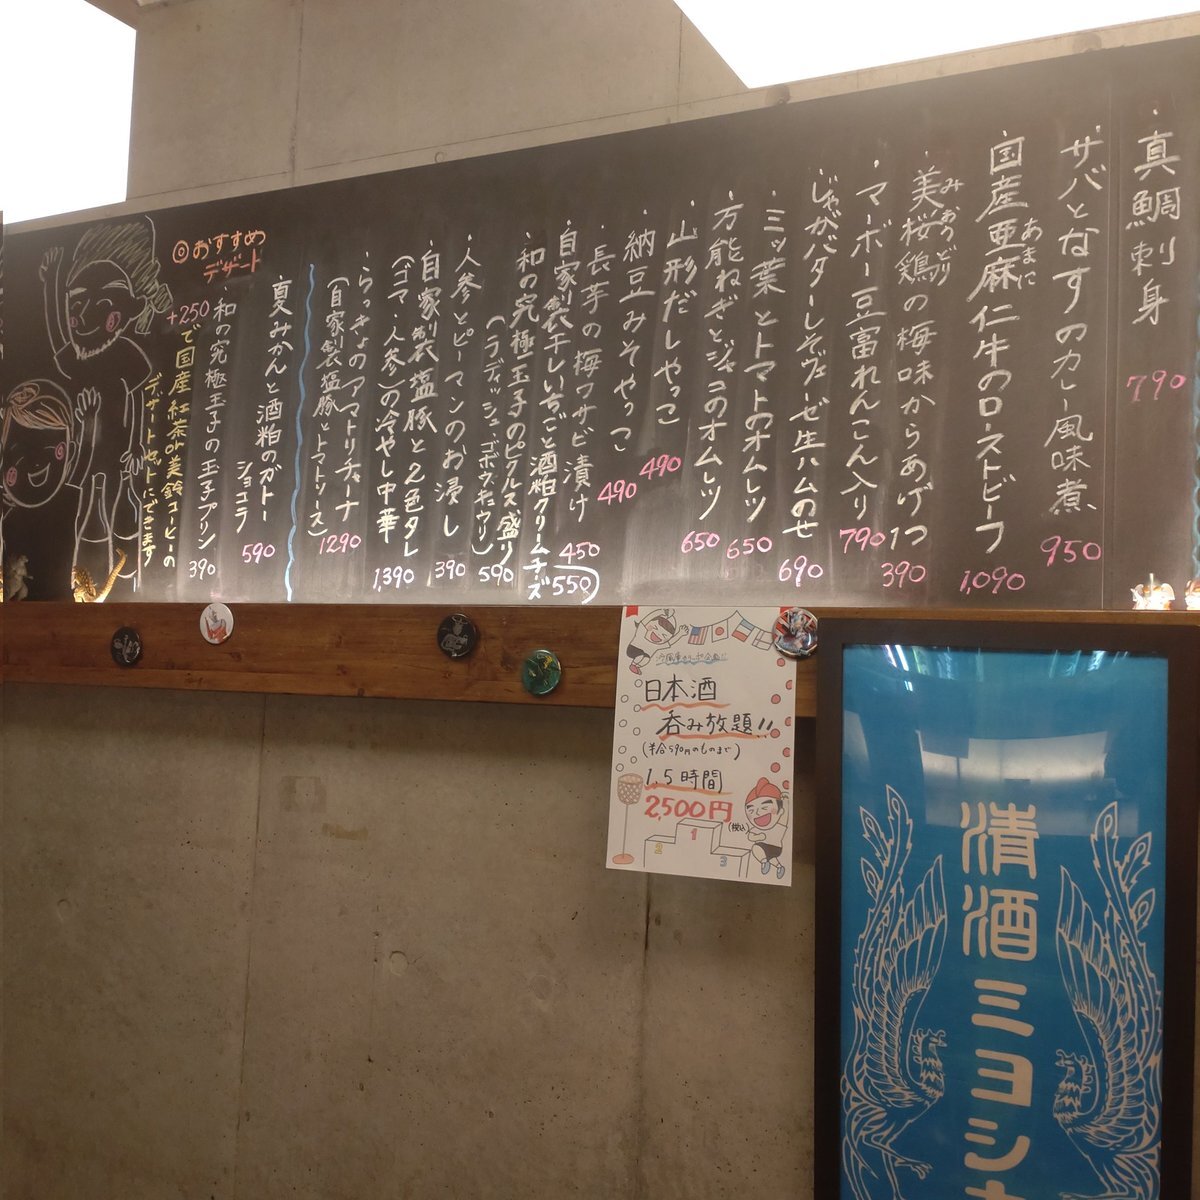 ・真鯛刺身 790
サバとなすのカレー風味煮 950
国産亜麻仁牛のローストビーフ 1,090
あまに
・美桜鶏の梅味からあげ1つ 390
みおうどり
・マーボー豆富れんこん入り 790
じゃがバターしそヴェーゼ生ハムのせ 690
・ミッ葉とトマトのオムレツ 650
・万能ねぎとジャコのオムレツ 650
・山形だしやっこ 490
・納豆みそやっこ 490
・長芋の梅ワサビ漬け 450
自家製干しいちごと酒粕クリームチーズ 550
・和の究極玉子のピクルス盛り 590
(ラディッシュ・ゴボウ・キュウリ)
・人参とピーマンのお浸し 390
・自家製塩豚と2色タレ
(ゴマ・人参)の冷やし中華 1,390
・らっきょのアマトリチャーナ 1290
(自家製塩豚とトマトソース)
◎おすすめ
デザート
・夏みかんと酒粕のガトー
ショコラ 590
・和の究極玉子の玉子プリン 390
+250で国産紅茶or美鈴コーヒーの
デザートセットにできます
日本酒
呑み放題!!
(半合590円のものまで)
1.5時間
2,500円
(税込)
1
2
3
清酒ミヨシ